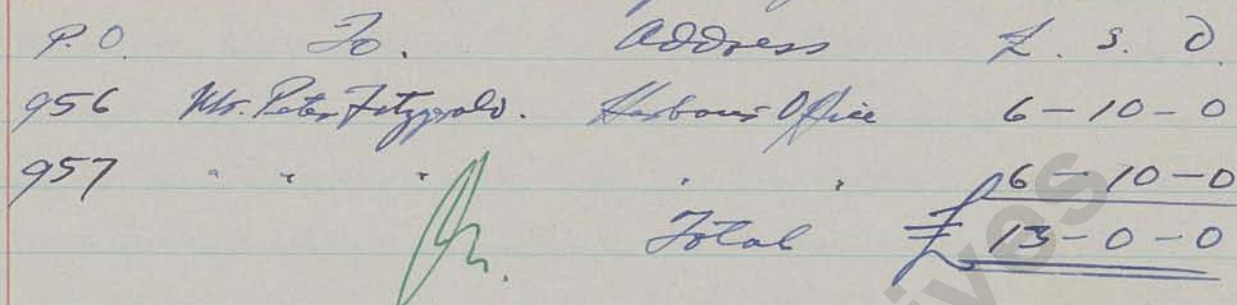 P.O. To. Address £. S. D.
956 Mr. Peter Fitzgerald. Harbour Office 6-10-0
957 " " " " " 6-10-0
Total £ 13-0-0